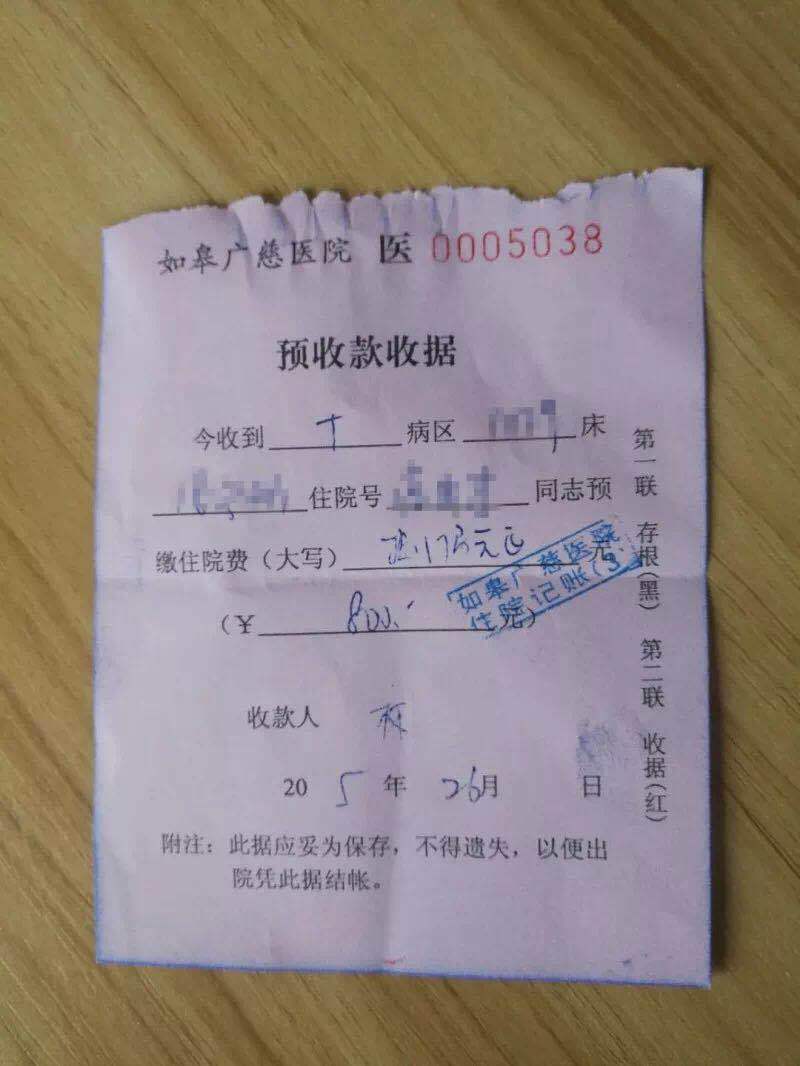 如皋广慈医院 医 0005038
预收款收据
今收到 病区 床
住院号 同志预
缴住院费（大写） 元正 元
（¥ 800.- 元）
如皋广慈医院
住院记账(3)
收款人
20 5 年 26 月 日
附注：此据应妥为保存，不得遗失，以便出
院凭此据结帐。
第一联 存根(黑) 第二联 收据(红)